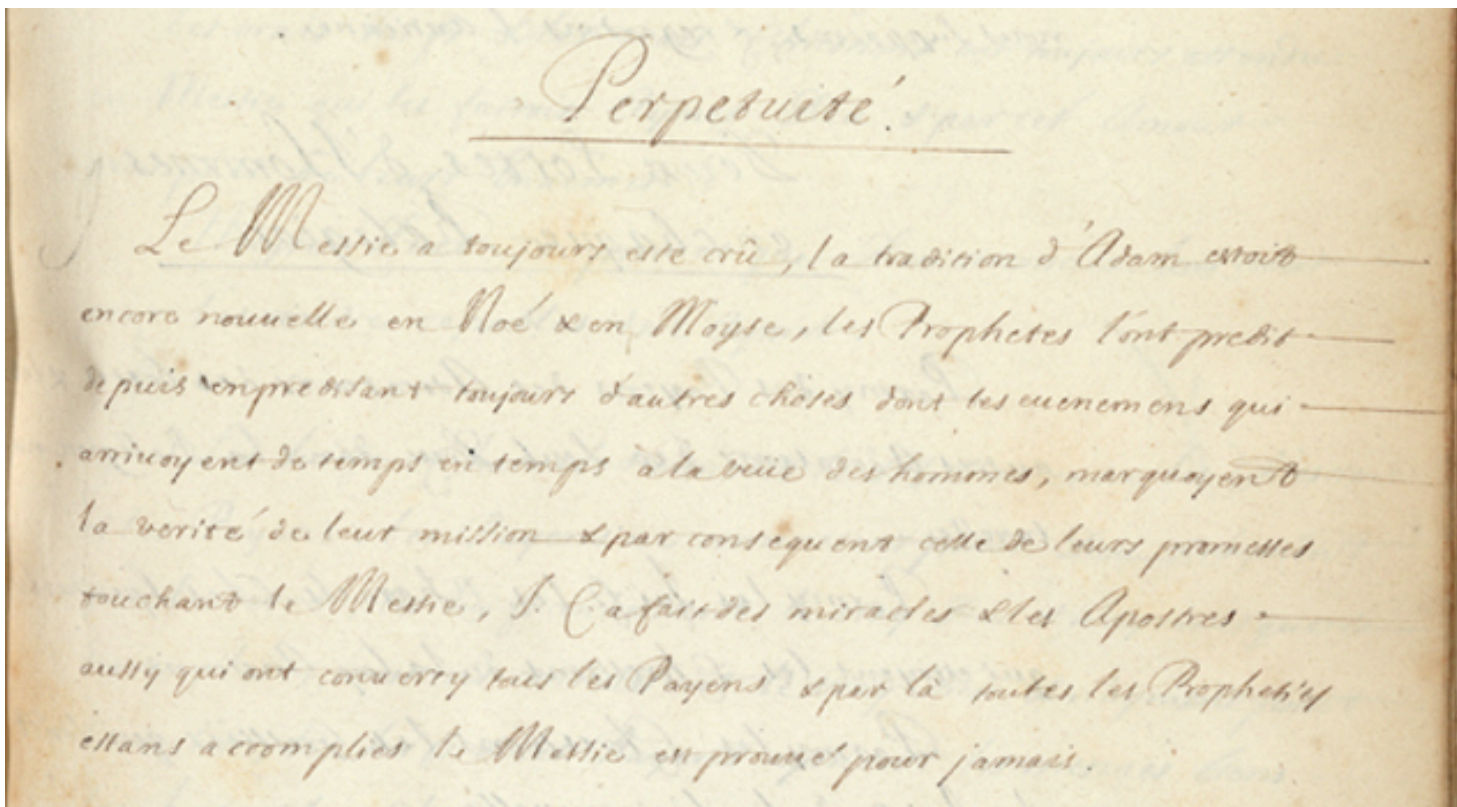 Perpetuité.
Le Messie a toujours esté crû, la tradition d'Adam estoit
encore nouuelle en Noé & en Moyse, les Prophetes l'ont predit
depuis en predisant toujours d'autres choses dont les euenemens qui
arriuoyent de temps en temps à la veue des hommes, marquoyent
la verité de leur mission & par consequent celle de leurs promesses
touchant le Messie, J. C. a fait des miracles & les Apostres
aussy qui ont conuerty tous les Payens & par là toutes les Propheties
estans accomplies le Messie est prouué pour jamais.